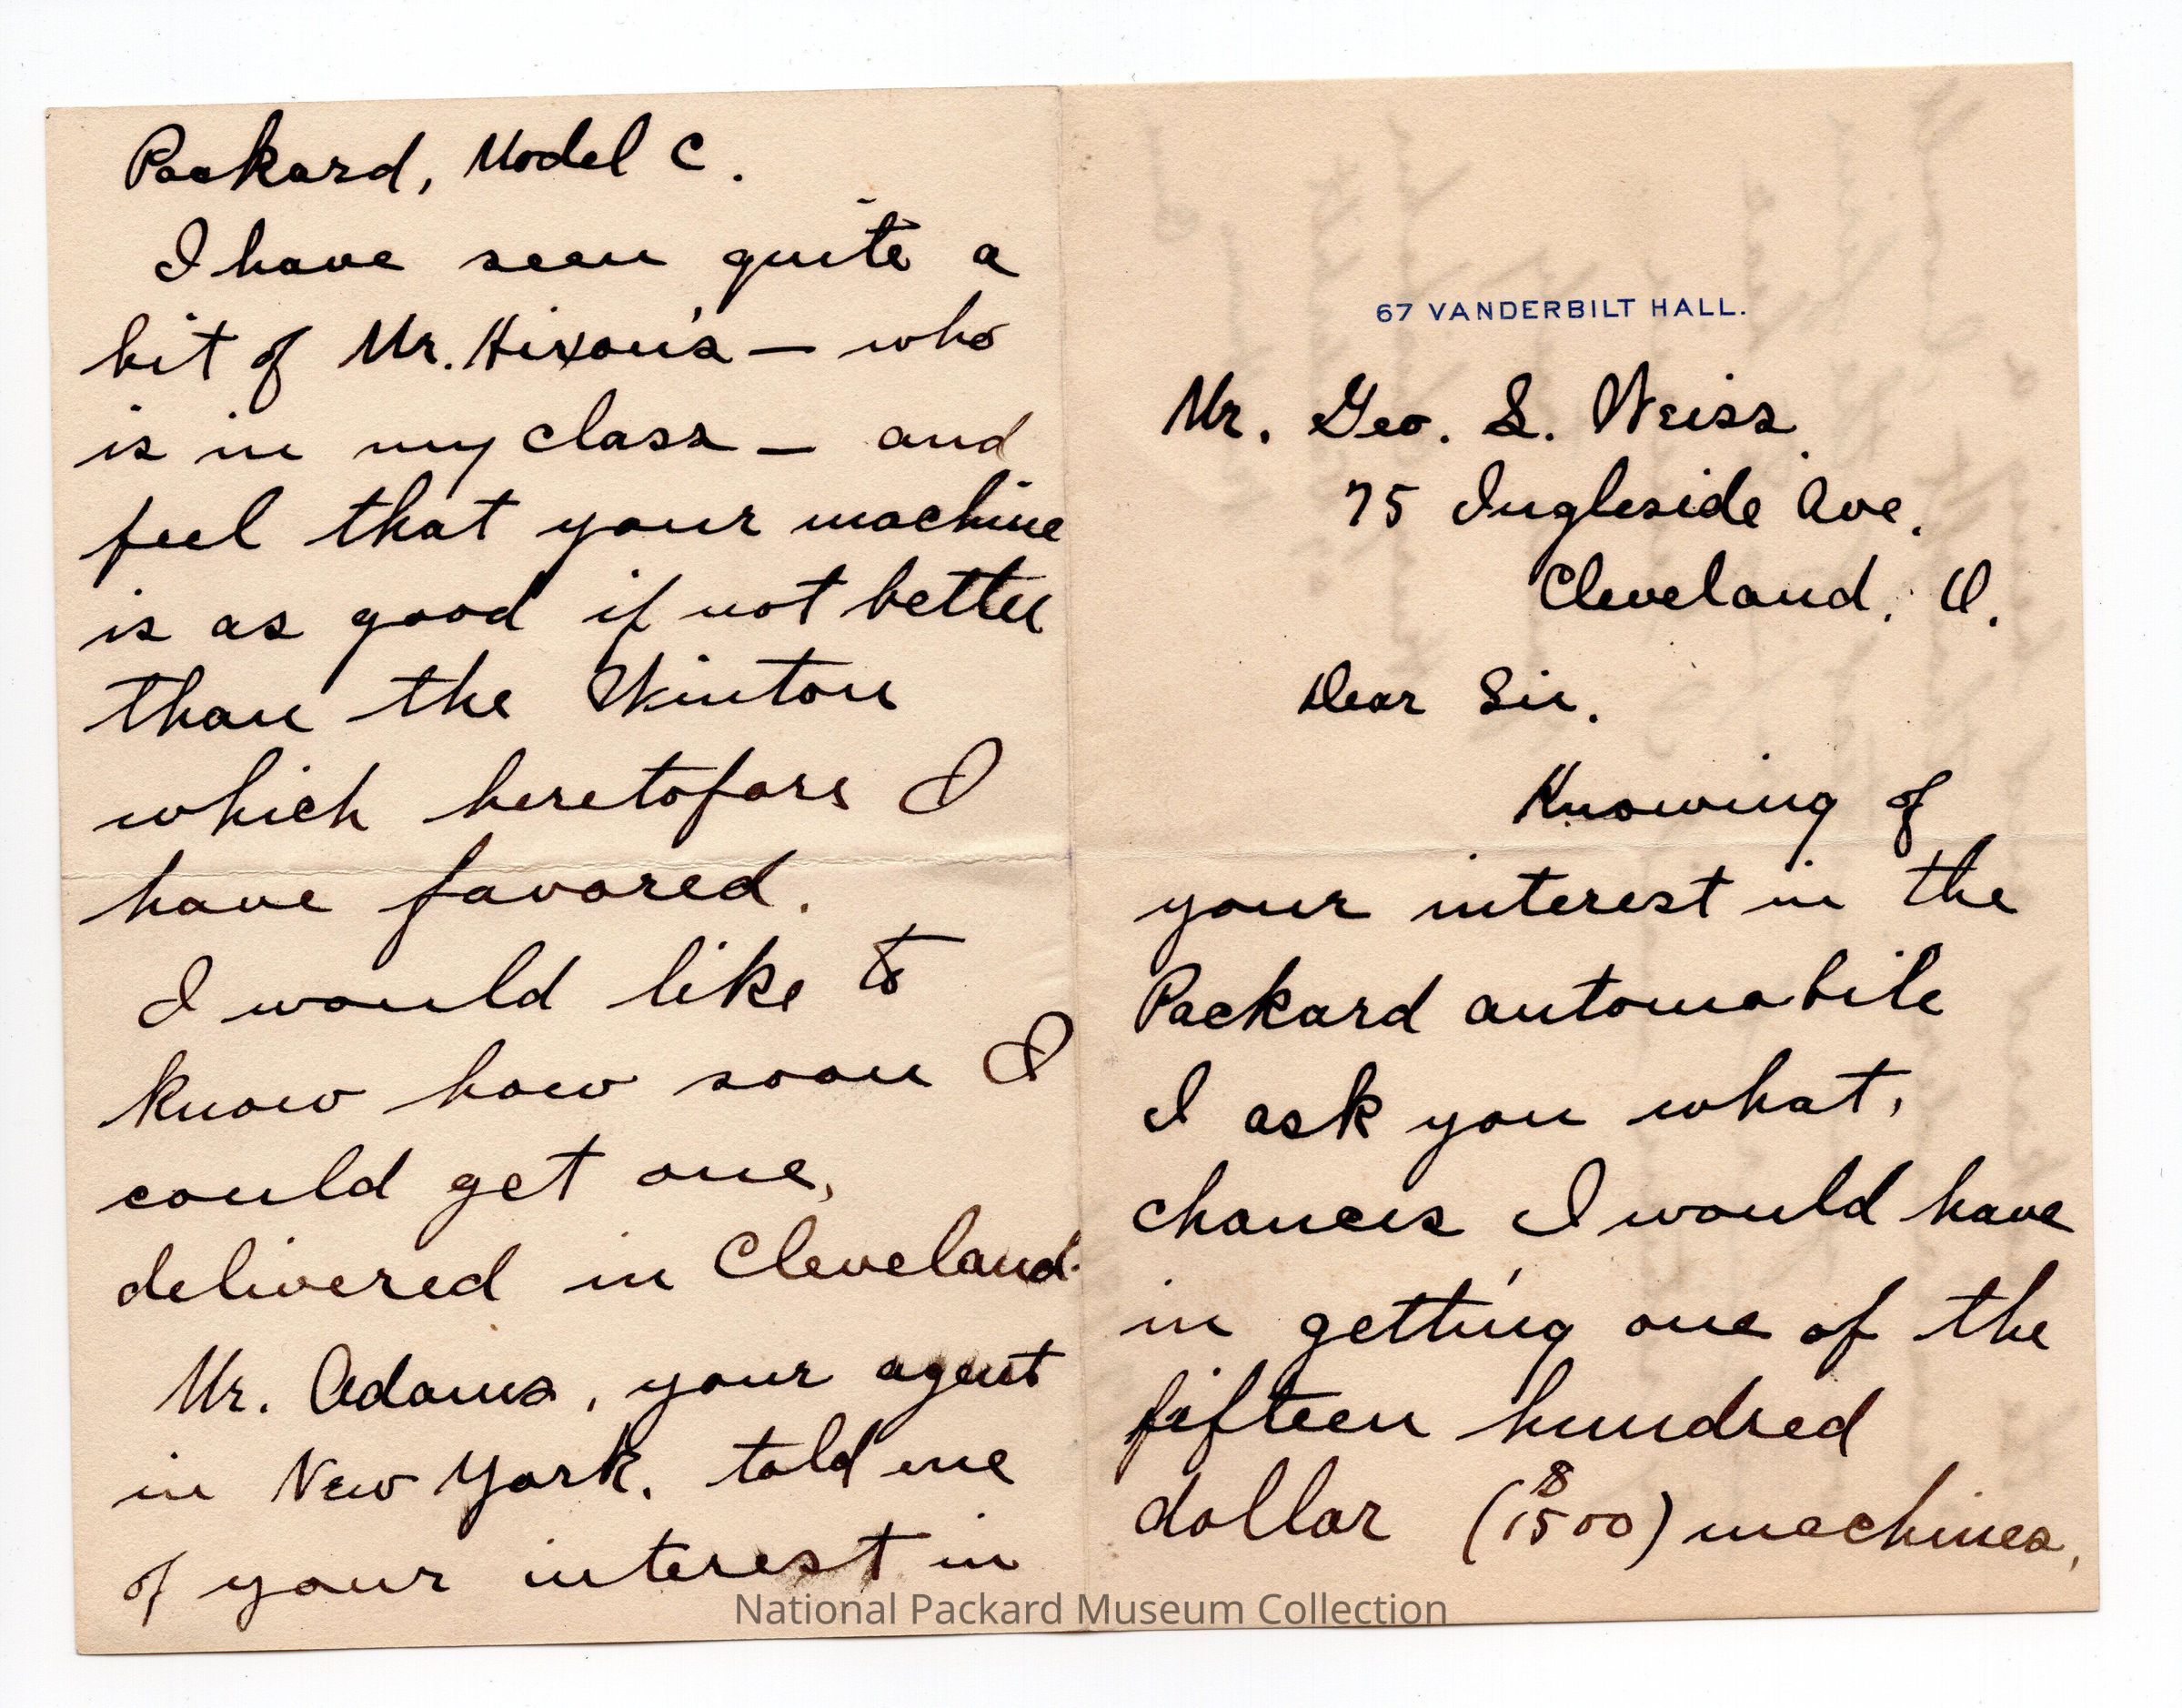 67 VANDERBILT HALL.
Mr. Geo. L. Weiss
75 Ingleside Ave.
Cleveland, O.
Dear Sir.
Knowing of
your interest in the
Packard automobile
I ask you what,
chances I would have
in getting one of the
fifteen hundred
dollar ($1500) machines,
Packard, Model C.
I have seen quite a
bit of Mr. Hixon's — who
is in my class — and
feel that your machine
is as good if not better
than the Winton
which heretofore I
have favored.
I would like to
know how soon I
could get one,
delivered in Cleveland.
Mr. Adams, your agent
in New York, told me
of your interest in
National Packard Museum Collection